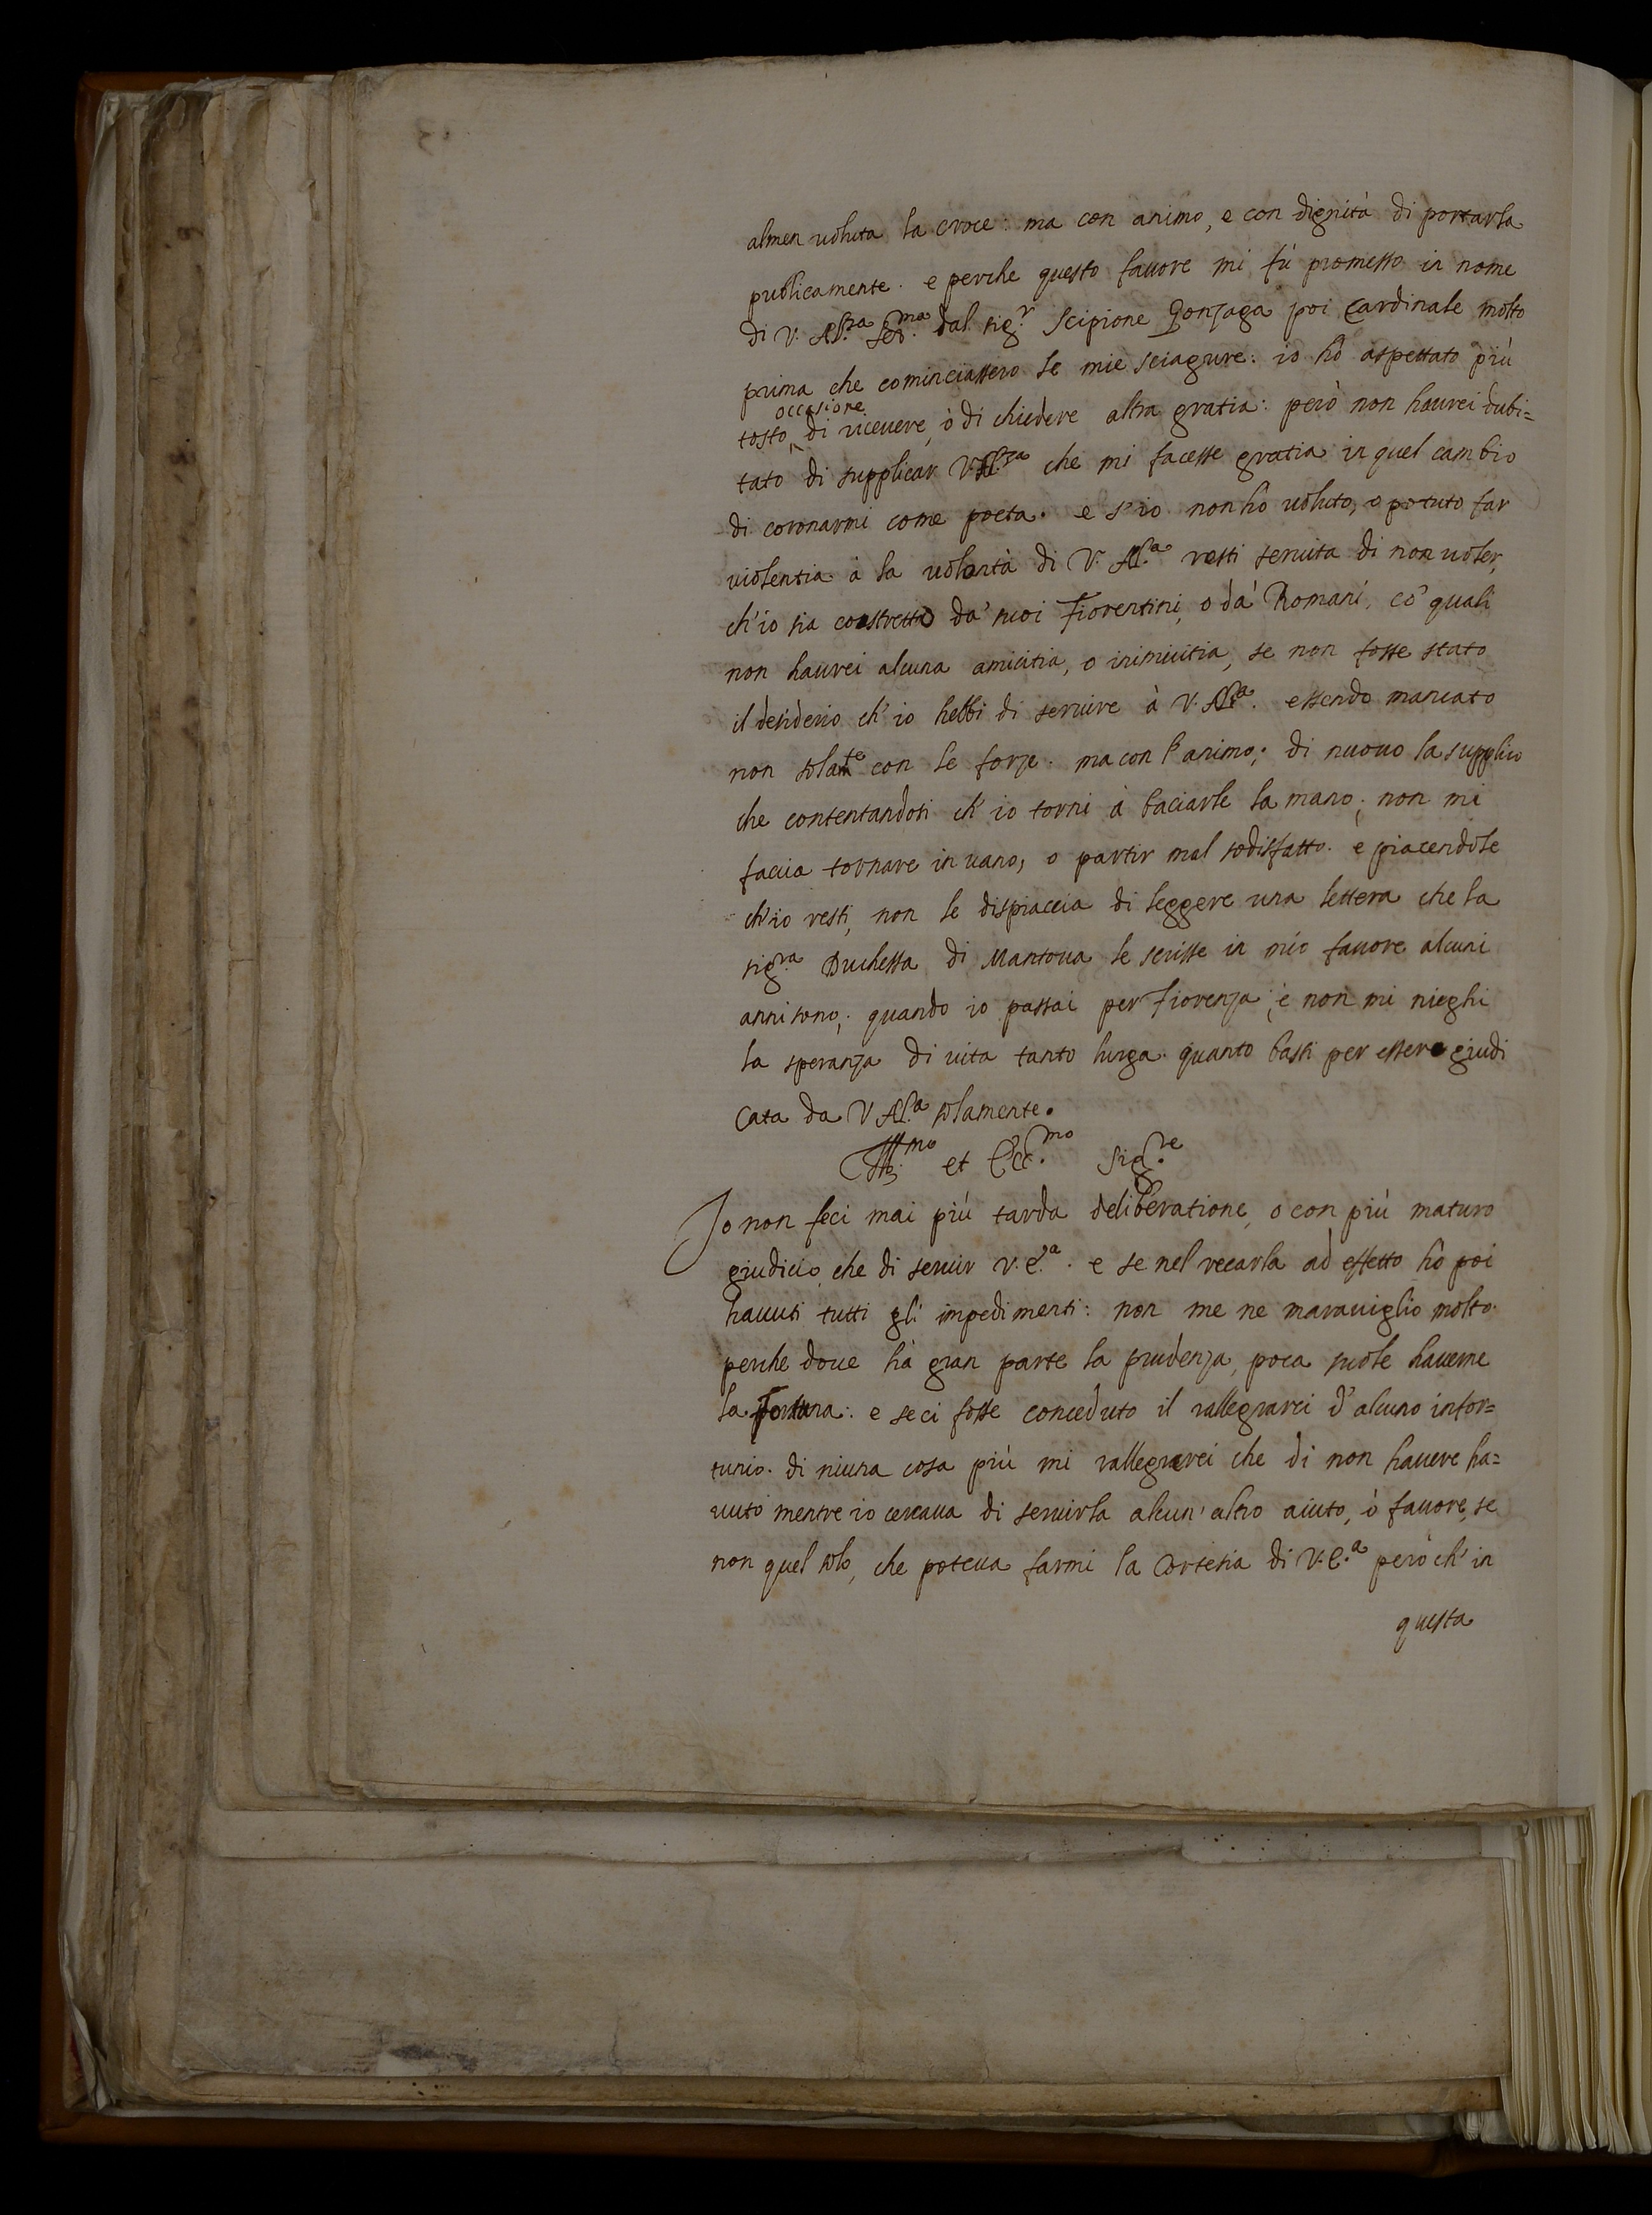 almen uoluta la croce: ma con animo, e con dignità di portarla
publicamente. e perche questo fauore mi fù promesso in nome
di V. Al.za Ser.ma dal sig.r Scipione Gonzaga poi Cardinale molto
prima che cominciassero le mie sciagure: io hò aspettato più
occasione
tosto di riceuere, ò di chiedere altra gratia: però non haurei dubi=
tato di supplicar V. Al.za che mi facesse gratia in quel cambio
di coronarmi come poeta. e s'io non hò uoluto, o potuto far
uiolentia à la uolontà di V. Al.a resti seruita di non uoler,
ch'io sia costretto da' suoi Fiorentini, o da' Romani, co' quali
non haurei alcuna amicitia, o inimicitia, se non fosse stato
il desiderio ch'io hebbi di seruire à V. Al.a. essendo mancato
non solam.te con le forze. ma con l'animo; di nuouo la supplico
che contentandosi ch'io torni à baciarle la mano; non mi
faccia tornare in uano, o partir mal sodisfatto. e piacendole
ch'io resti, non le dispiaccia di leggere una lettera che la
sig.ra Duchessa di Mantoua le scrisse in mio fauore alcuni
anni sono; quando io passai per Fiorenza; e non mi nieghi
la speranza di uita tanto lunga. quanto basti per essere giudi
cata da V. Al.a solamente.
Ill.mo et Ecc.mo Sig.re
Io non feci mai più tarda deliberatione, o con più maturo
giudicio, che di seruir V. E.a. e se nel recarla ad effetto hò poi
hauuti tutti gli impedimenti: non me ne marauiglio molto.
perche doue hà gran parte la prudenza, poca suole hauerne
la Fortuna: e se ci fosse conceduto il rallegrarci d'alcuno infor=
tunio. di niuna cosa più mi rallegrerei che di non hauere ha=
uuto mentre io cercaua di seruirla alcun' altro aiuto, ò fauore, se
non quel solo, che poteua farmi la Cortesia di V. E.a però ch'in
questa